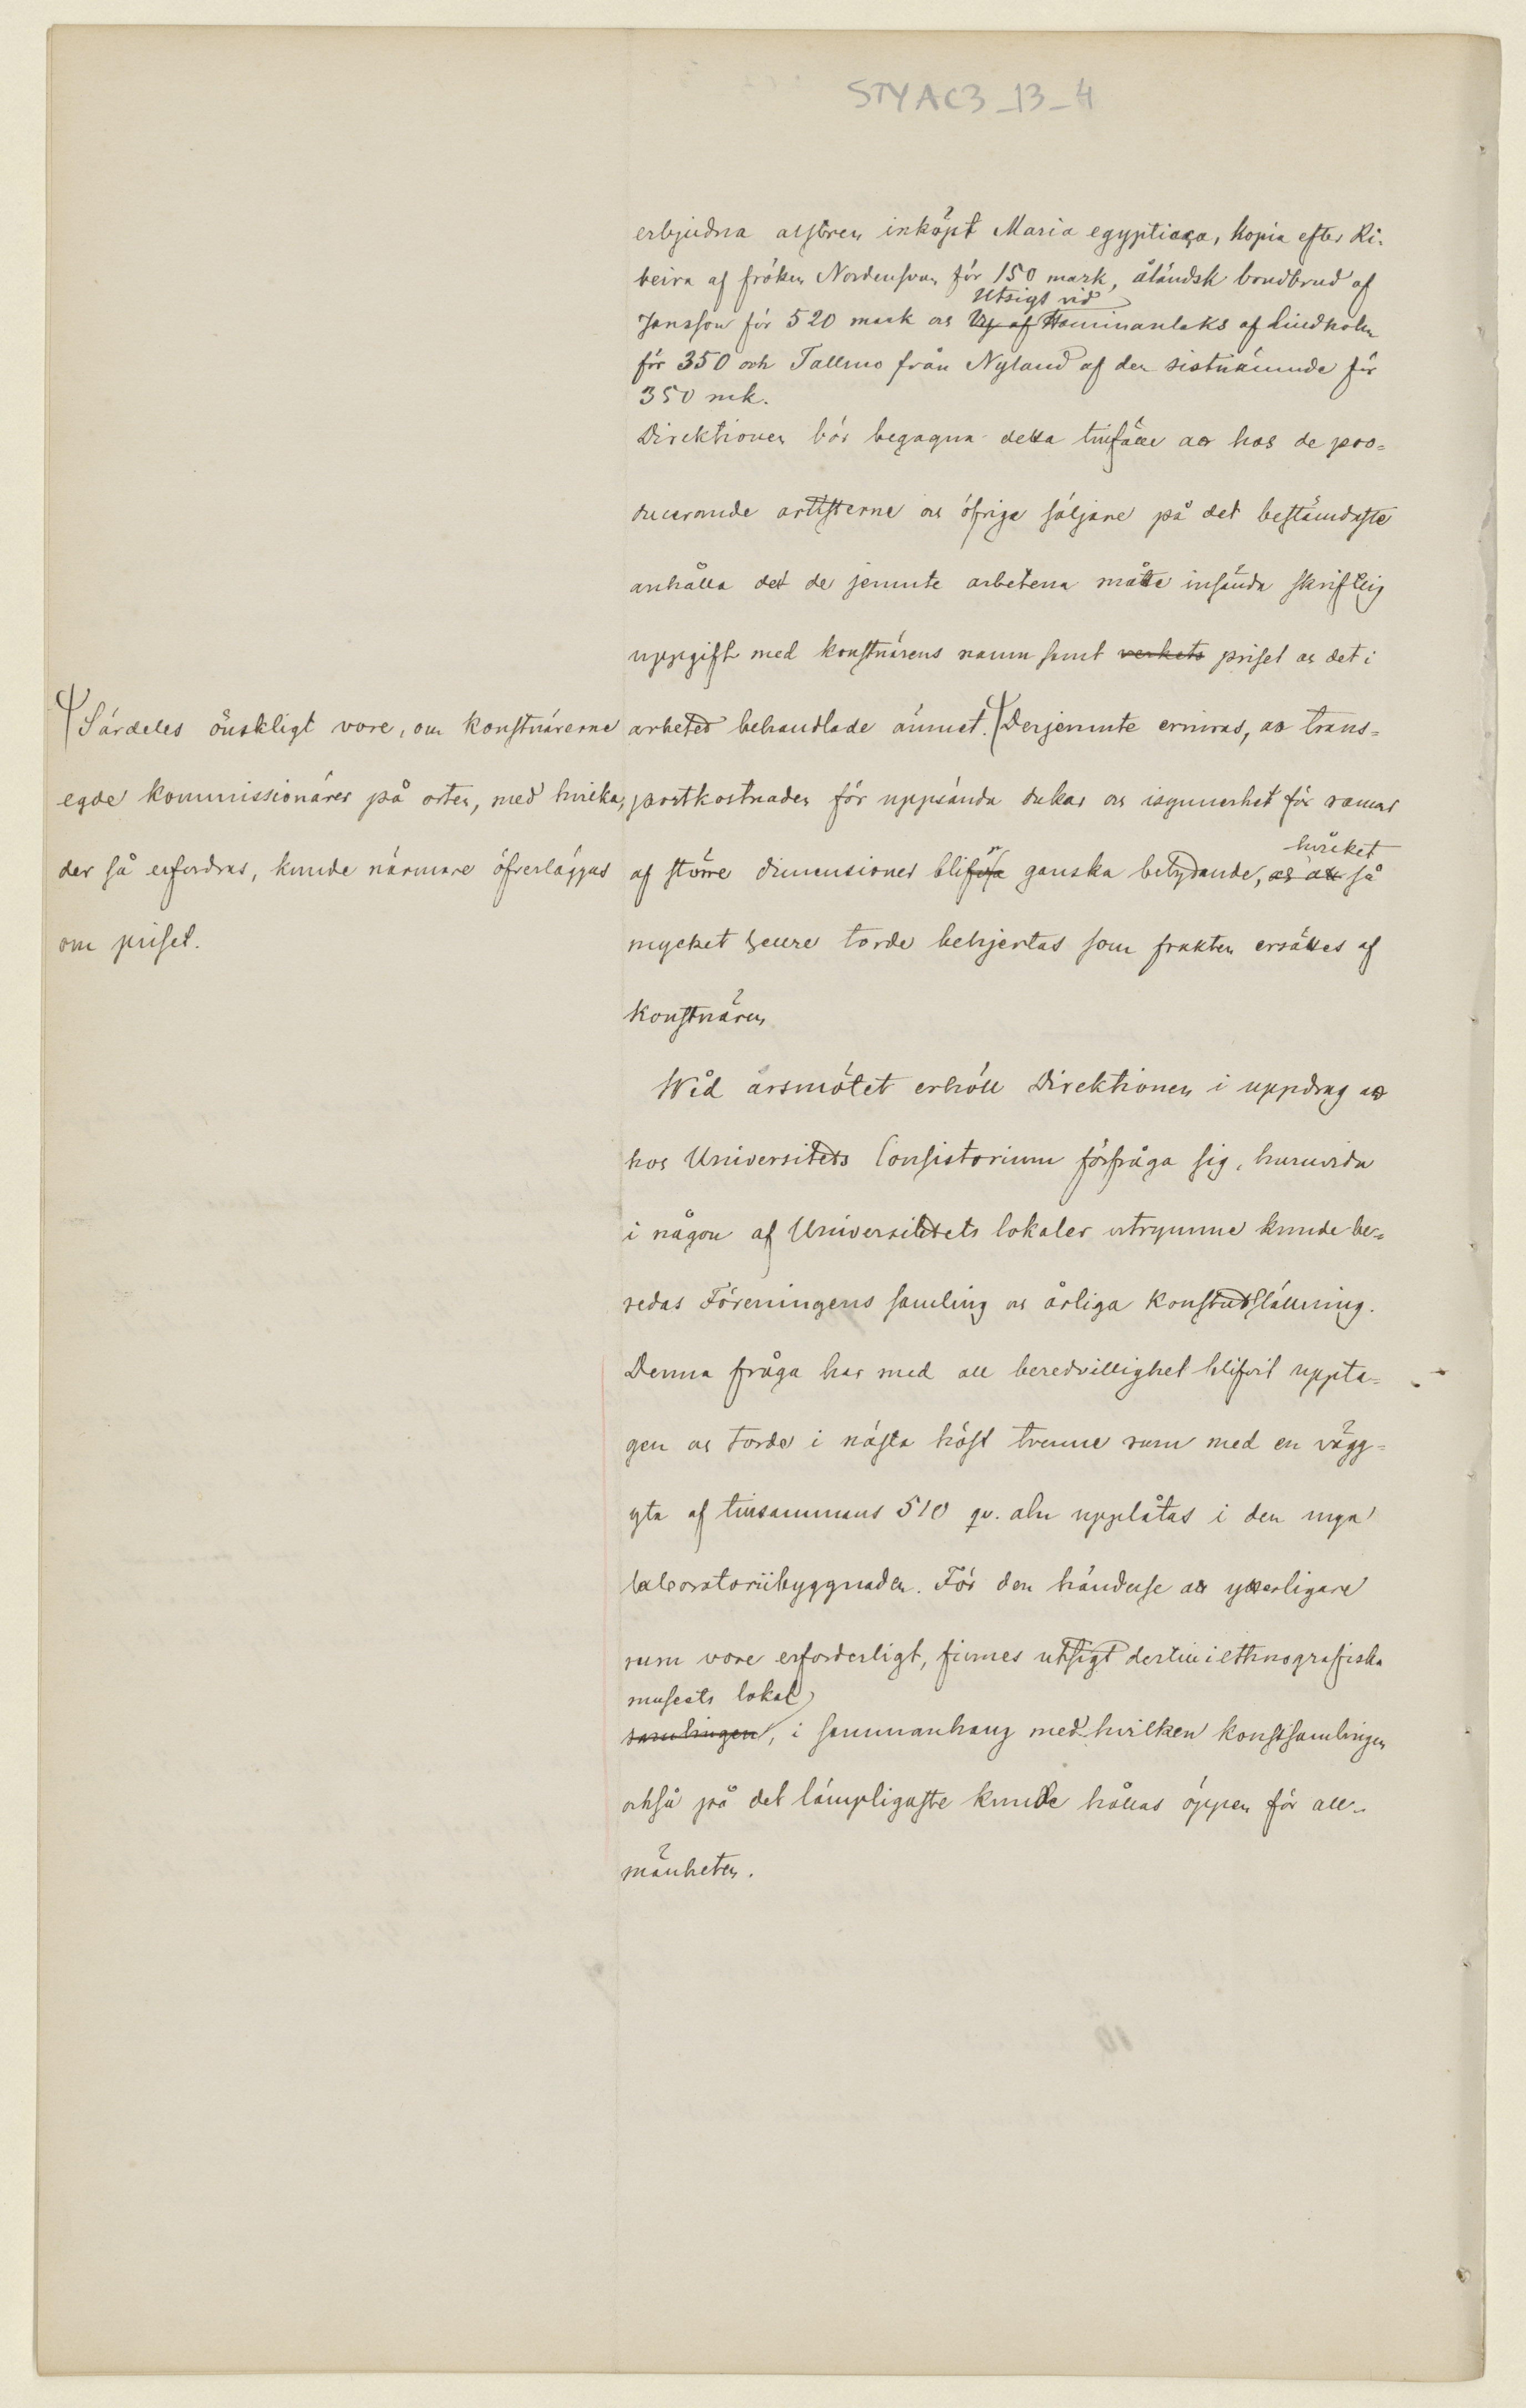 STYAC3_13_4
erbjudna alstren inköpt Maria egyptiaca, kopia efter Ri-
beira af fröken Nordensvan för 150 mark, åländsk brudbrud af
Utsigt vid
Jansson för 520 mark och Vy af Hominanlaks af Lindholm
för 350 och Tallmo från Nyland af den sistnämnde för
350 mk.
Direktionen bör begagna detta tillfälle att hos de pro-
ducerande artisterne och öfriga säljare på det bestämdaste
anhålla det de jemnte arbetena måtte insända skriftlig
uppgift med konstnärens namn samt verkets priset och det i
arbetet behandlade ämnet. Derjemnte erinras, att trans-
portkostnaden för uppsända dukar och isynnerhet för ramar
hvilket
af större dimensioner blifva ganska betydande, och att så
mycket heldre torde behjertas som frakten ersättes af
konstnären
Ψ Särdeles önskligt vore, om konstnärerne
egde kommissionärer på orten, med hvilka,
der så erfordras, kunde närmare öfverläggas
om priset.
Wid årsmötet erhöll Direktionen i uppdrag att
hos Universitets Consistorium förfråga sig, huruvida
i någon af Universitetets lokaler utrymme kunde be-
redas Föreningens samling och årliga konstutställning.
Denna fråga har med all beredvillighet blifvit uppta-
gen och torde i nästa höst tvenne rum med en vägg-
yta af tillsammans 510 qv. aln upplåtas i den nya
laboratoriibyggnaden. För den händelse att ytterligare
rum vore erforderligt, finnes utsigt dertill i ethnografiska
museets lokal
samlingen, i sammanhang med hvilken konstsamlingen
också på det lämpligaste kunde hållas öppen för all-
mänheten.